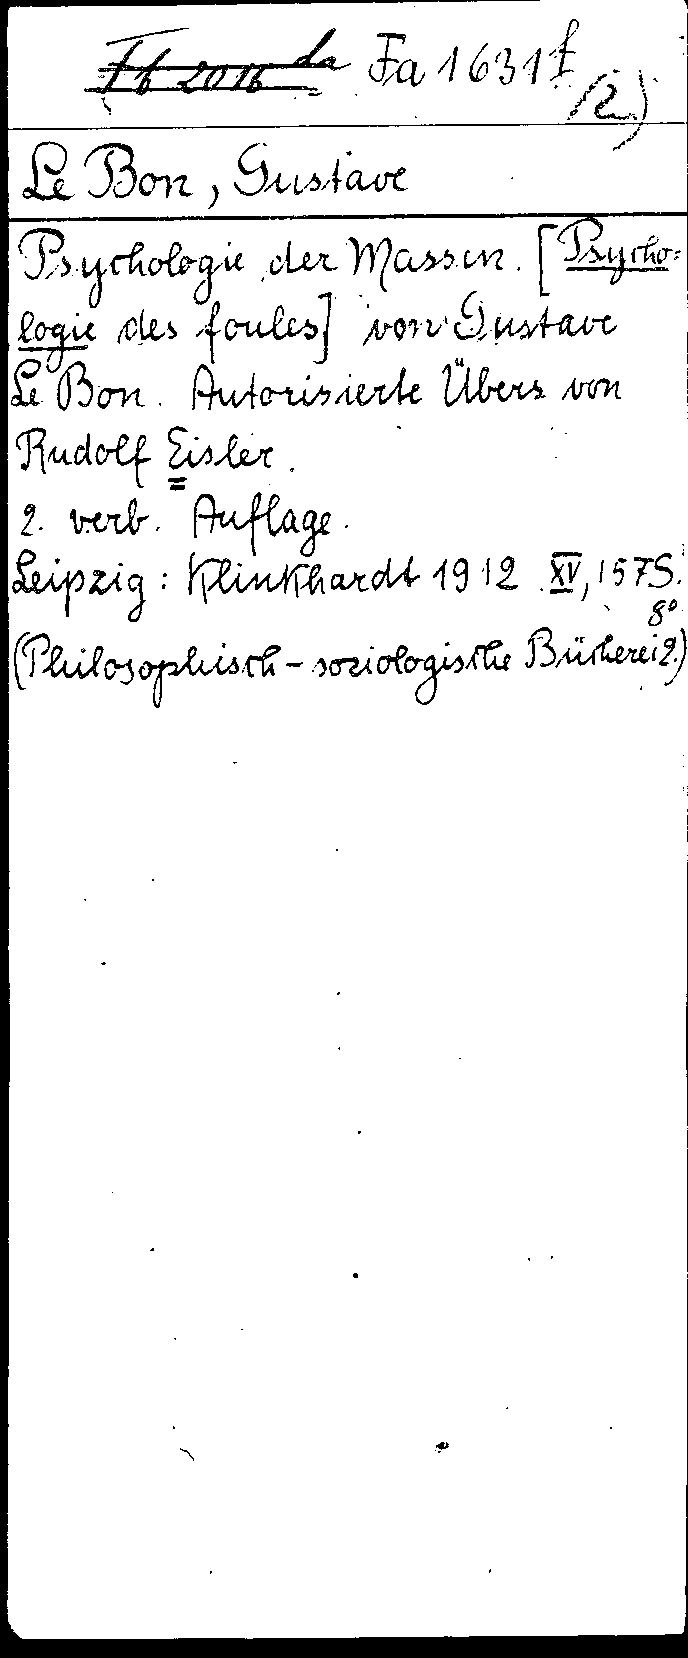 Fb 2016 da Fa 1631 f
(2)
Le Bon, Gustave
Psychologie der Massen. [Psycho=
logie des foules] von Gustave
Le Bon. Autorisierte Übers von
Rudolf Eisler.
2. verb. Auflage.
Leipzig: Klinkhardt 1912 XV, 157 S.
8°
(Philosophisch-soziologische Bücherei 2.)